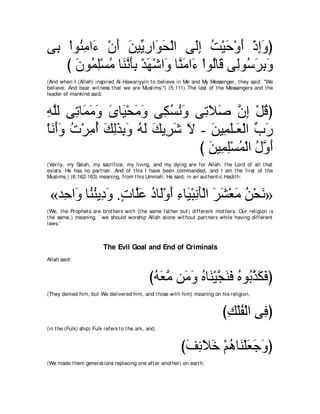 ﴿وَإِذْ أَوْحَيْتُ إِلَى الْحَوَارِيِّينَ أَنْ ءَامِنُواْ بِى
وَبِرَسُولِى قَالُواْ ءَامَنَّا وَاشْهَدْ بِأَنَّنَا مُسْلِمُونَ ﴾
(And when I (Allah) inspired Al-Hawariyyin to believe in Me and My Messenger, they said: "We
believe. And bear witness that we are Muslims.'') (5:111) The last of the Messengers and the
leader of mankind said:
﴿قُلْ إِنَّ صَلاَتِى وَنُسُكِى وَمَحْيَاىَ وَمَمَاتِى لِلَّهِ
رَبِّ الْعَـلَمِينَ - لاَ شَرِيكَ لَهُ وَبِذَلِكَ أُمِرْتُ وَأَنَاْ
أَوَّلُ الْمُسْلِمِينَ ﴾
(Verily, my Salah, my sacrifice, my living, and my dying are for Allah, the Lord of all that
exists. He has no partner. And of this I have been commanded, and I am the first of the
Muslims.) (6:162-163) meaning, from this Ummah. He said, in an authentic Hadith:
«نَحْنُ مَعْشَرَ الْأَنْبِيَاءِ أَوْلَادُ عَلَّاتٍ. وَدِينُنَا وَاحِد»
(We, the Prophets are brothers with (the same father but) different mothers. Our religion is
the same,) meaning, `we should worship Allah alone without partners while having different
laws.'
The Evil Goal and End of Criminals
Allah said:
﴿فَكَذَّبُوهُ فَنَجَّيْنَاهُ وَمَن مَّعَهُ﴾
(They denied him, but We delivered him, and those with him) meaning on his religion,
﴿فِى الْفُلْكِ﴾
(in the (Fulk) ship) Fulk refers to the ark, and,
﴿وَجَعَلْنَاهُمْ خَلَائِفَ﴾
(We made them generations replacing one after another) on earth.